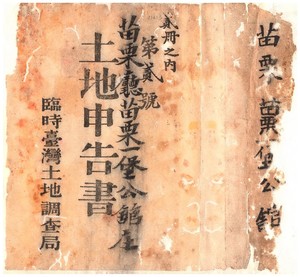 苗栗一堡公館
貳册之內
第貳號
苗栗廳苗栗一堡公館庄
土地申告書
臨時臺灣土地調查局